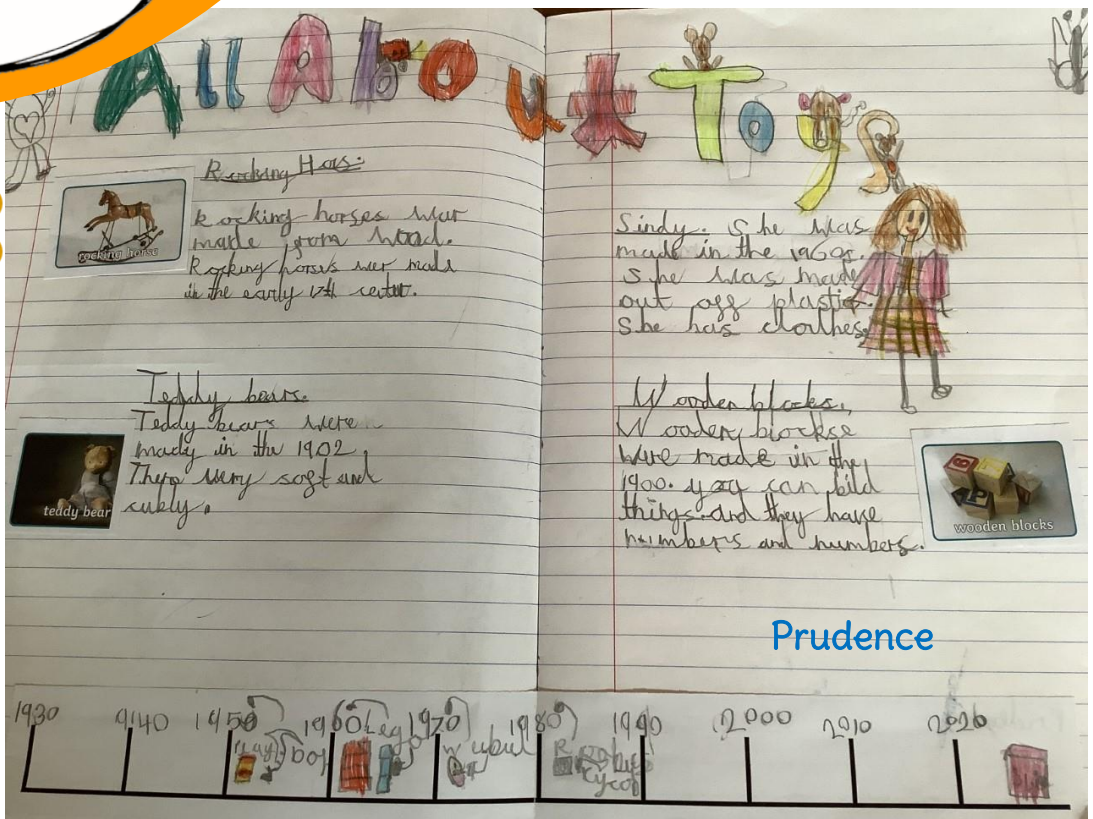 All About Toys
Rocking Hors:
Rocking horses wur
made from wood.
Rocking horsis wer made
in the early 17th
rocking horse
Teddy bears.
Teddy bears were
mady in the 1902.
They wery soft and
cubly.
teddy bear
Sindy. She was
made in the 1960s.
She was made
out off plastic.
She has clothes.
Wooden blocks.
Wooden blockse
were made in the
1900. you can bild
things. and they have
numbers and numbers.
wooden blocks
Prudence
1930 9140 1950 1960 1970 1980 1990 2000 2010 2020
Lego